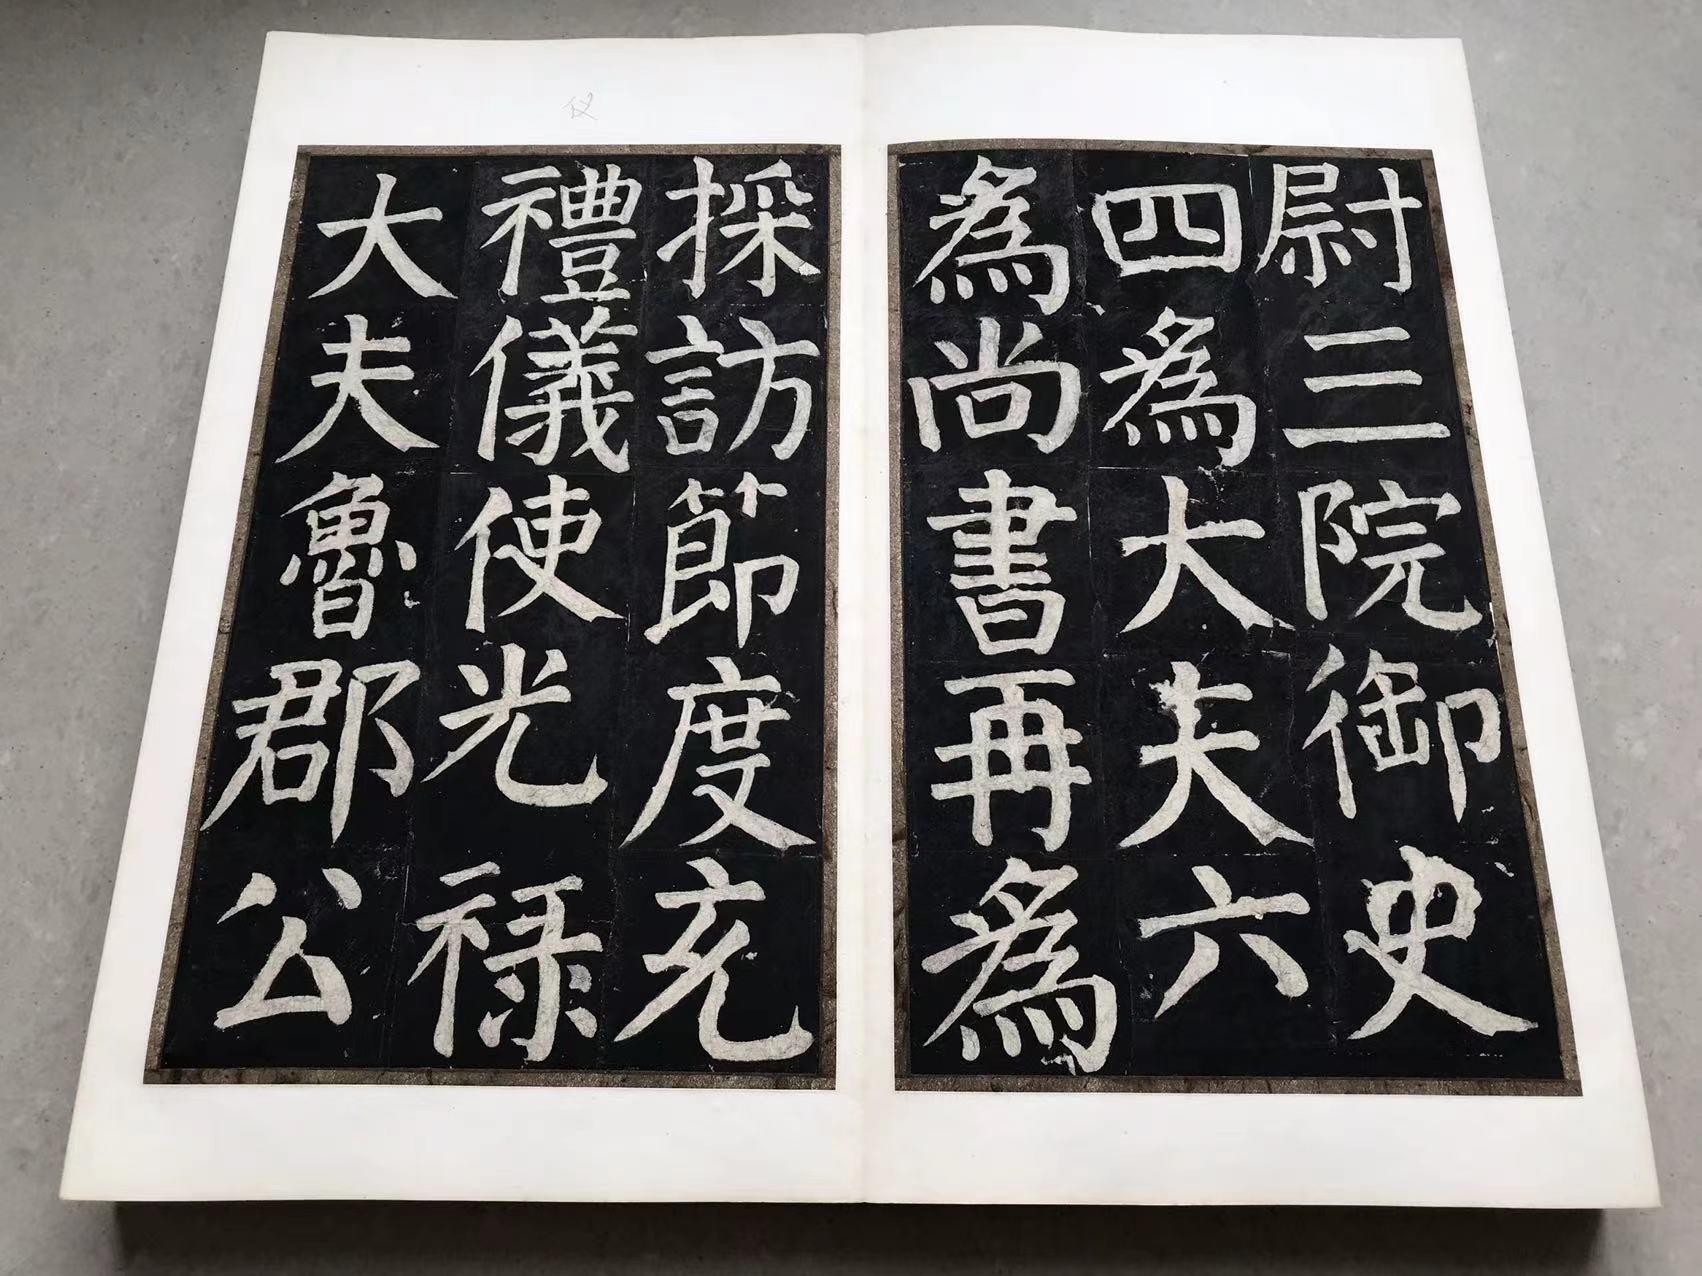 尉三院御史
四為大夫六
為尚書再為
採訪節度充
禮儀使光禄
大夫魯郡公